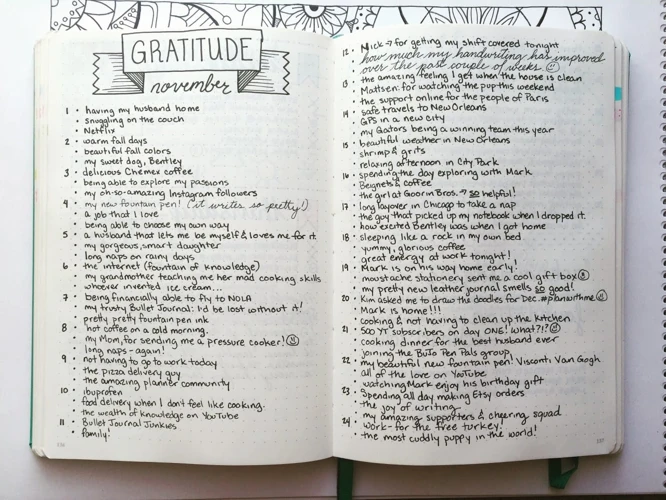 GRATITUDE
november
1 • having my husband home
• snuggling on the couch
• Netflix
2 • warm fall days
• beautiful fall colors
• my sweet dog, Bentley
3 • delicious Chemex coffee
• being able to explore my passions
• my oh-so-amazing Instagram followers
4 • my new fountain pen! (it writes so pretty!)
• a job that I love
• being able to choose my own way
5 • a husband that lets me be myself & loves me for it.
• my gorgeous, smart daughter
• long naps on rainy days
6 • the internet (fountain of knowledge)
• my grandmother teaching me her mad cooking skills
• whoever invented ice cream...
7 • being financially able to fly to NOLA
• my trusty Bullet Journal: I'd be lost without it!
• pretty pretty fountain pen ink
8 • hot coffee on a cold morning.
• my Mom, for sending me a pressure cooker!
• long naps - again!
9 • not having to go to work today
• the pizza delivery guy
• the amazing planner community
10 • ibuprofen
• food delivery when I don't feel like cooking.
• the wealth of knowledge on YouTube
11 • Bullet Journal Junkies
• family!
12 • Nick → for getting my shift covered tonight
• how much my handwriting has improved
over the past couple of weeks
13 • the amazing feeling I get when the house is clean
• Mattsen for watching the pup this weekend
• the support online for the people of Paris
14 • safe travels to New Orleans
• GPS in a new city
• my Gators being a winning team this year
15 • beautiful weather in New Orleans
• shrimp & grits
• relaxing afternoon in City Park
16 • spending the day exploring with Mark
• Beignets & coffee
• the girl at Goorin Bros. → so helpful!
17 • long layover in Chicago to take a nap
• the guy that picked up my notebook when I dropped it.
• how excited Bentley was when I got home
18 • sleeping like a rock in my own bed
• yummy, glorious coffee
• great energy at work tonight!
19 • Mark is on his way home early!
• moustache stationery sent me a cool gift box
• my pretty new leather journal smells so good!
20 • Kim asked me to draw the doodles for Dec. #planwithme
• Mark is home!!!
• cooking & not having to clean up the kitchen
21 • 500 YT subscribers on day ONE! What?!?
• cooking dinner for the best husband ever
• joining the BuJo Pen Pals group
22 • my beautiful new fountain pen! Visconti Van Gogh
• all of the love on YouTube
• watching Mark enjoy his birthday gift
23 • Spending all day making Etsy orders
• the joy of writing
• my amazing supporters & cheering squad
24 • work - for the free turkey!
• the most cuddly puppy in the world!